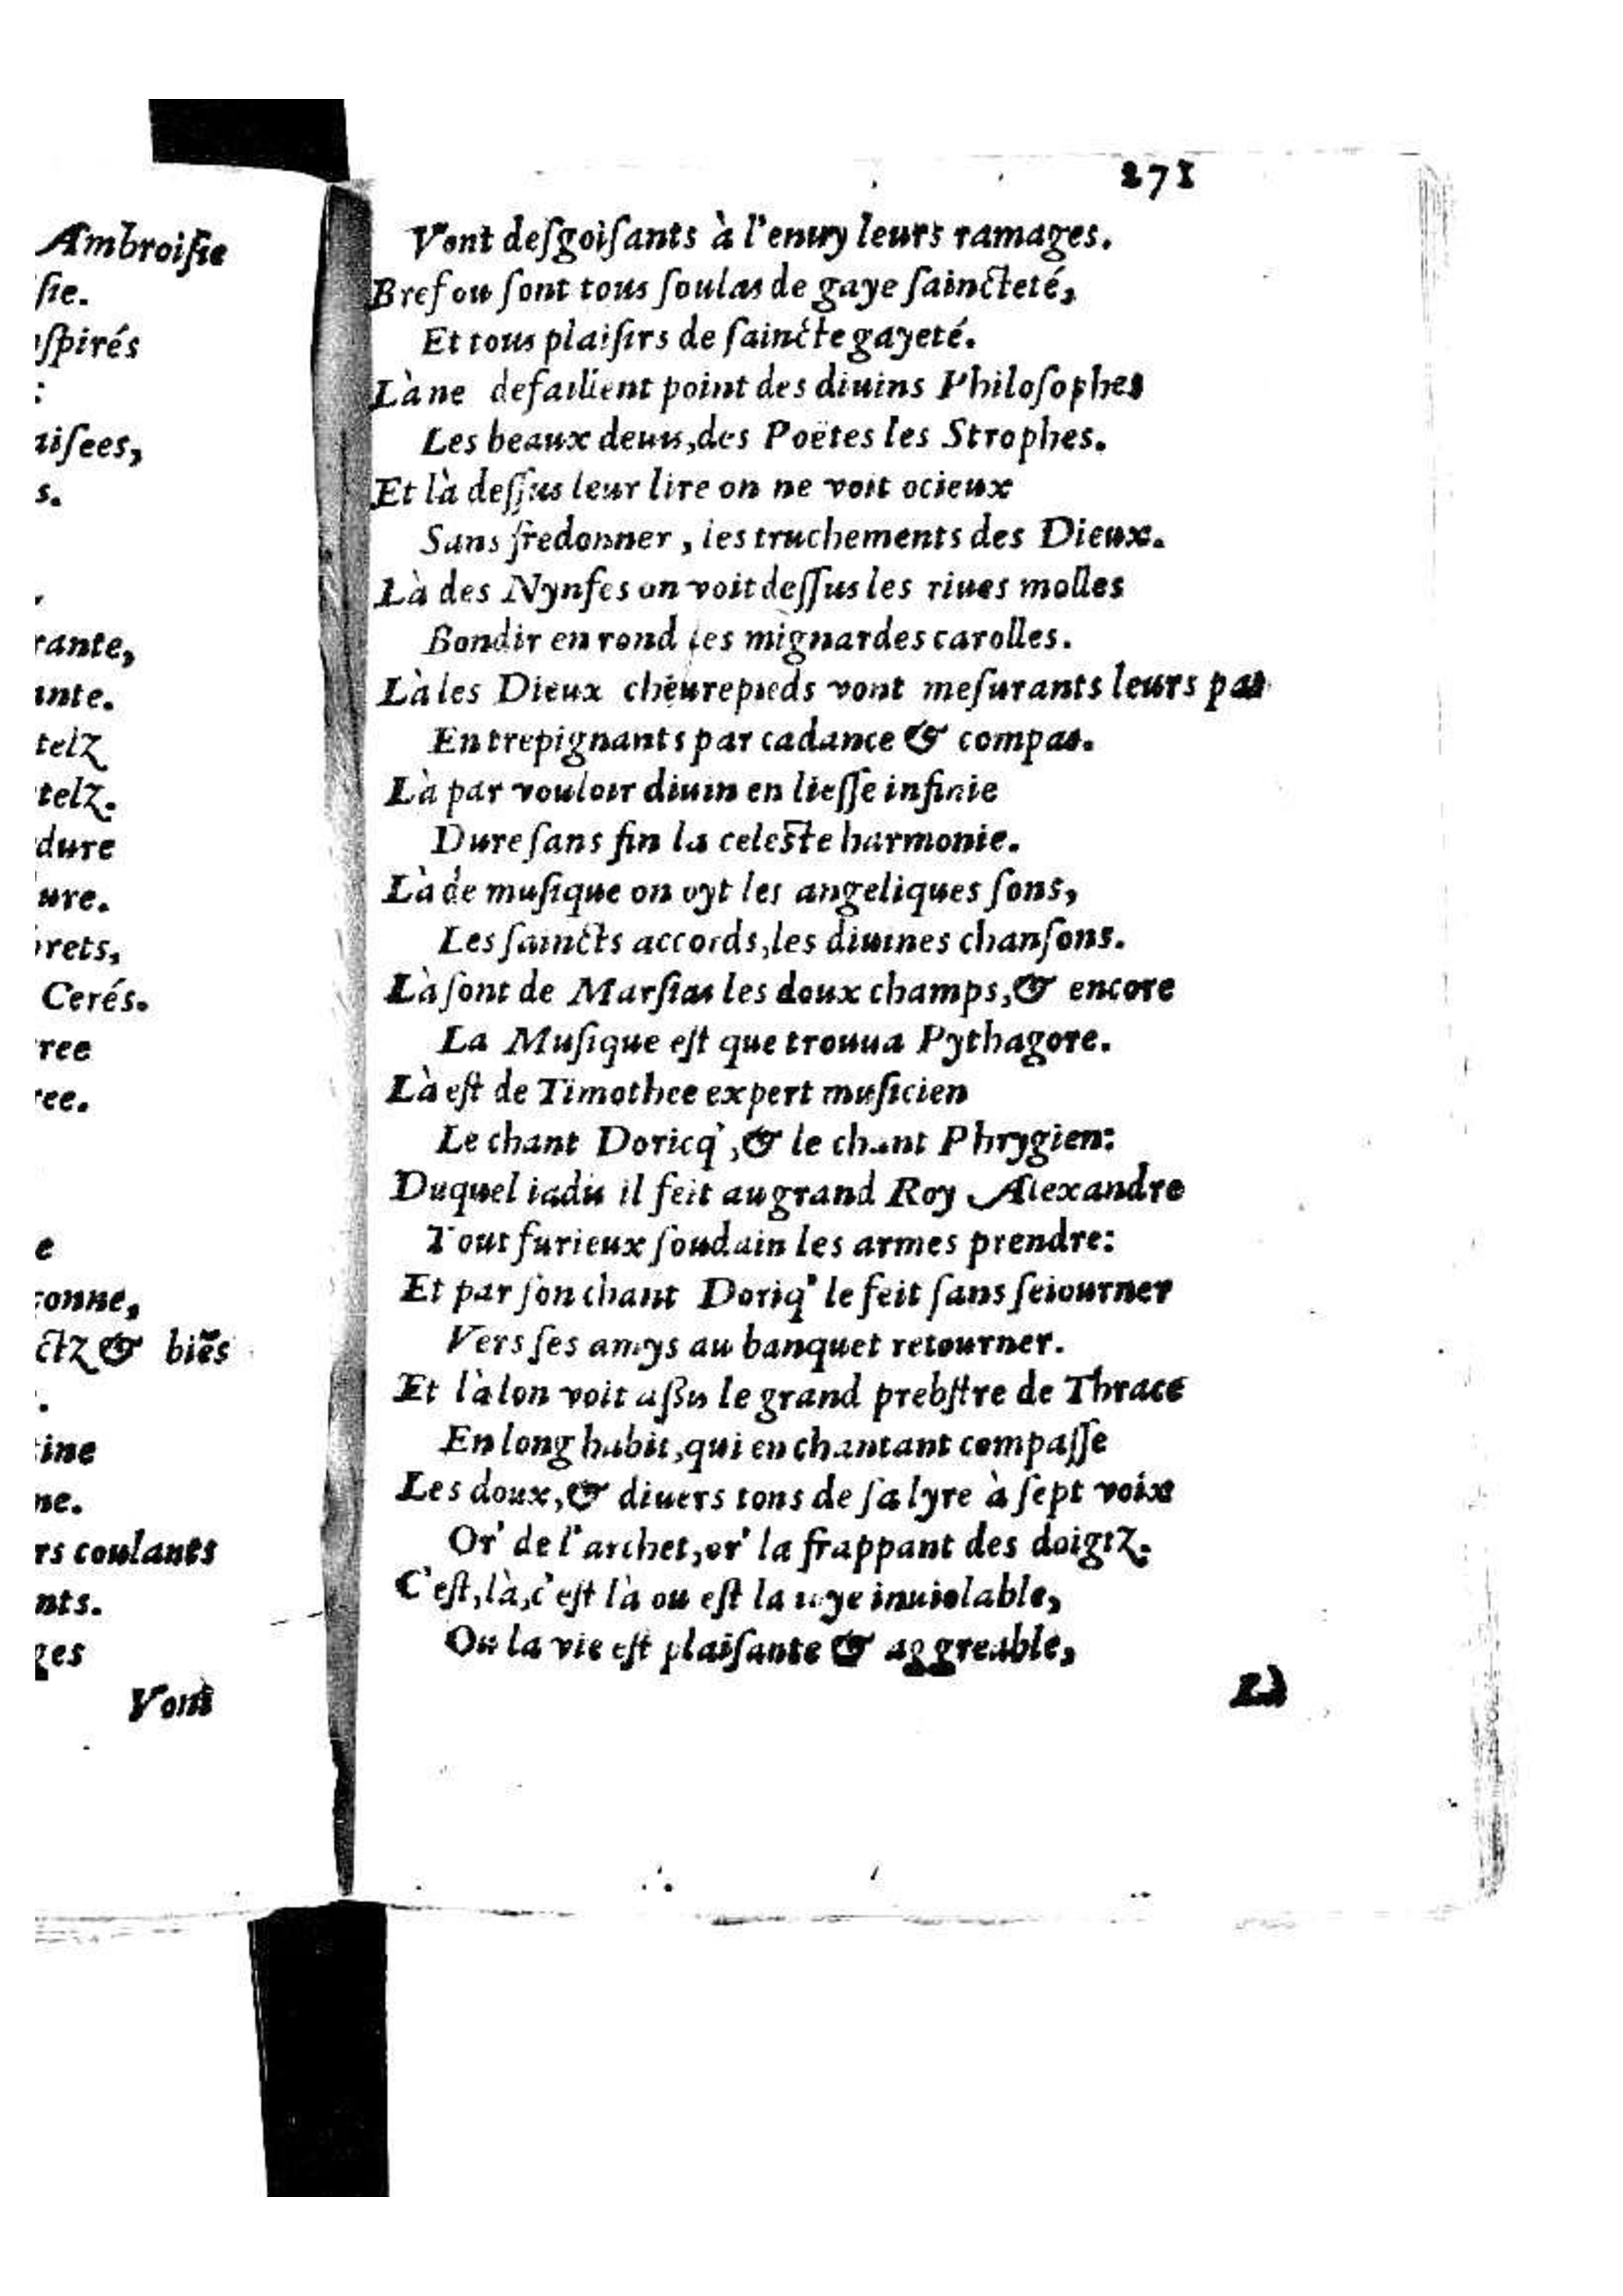 Ambroisie
sie.
spirés
:
aisees,
s.
rante,
ante.
telz
telz.
dure
ure.
rets,
Cerés.
ree
ree.
e
onne,
ctz & biẽs
.
ine
ne.
rs coulants
nts.
ges
Vont
271
Vont desgoisants à l'enuy leurs ramages.
Bref ou sont tous soulas de gaye saincteté,
Et tous plaisirs de saincte gayeté.
Là ne defaillent point des diuins Philosophes
Les beaux deuis, des Poëtes les Strophes.
Et là dessus leur lire on ne voit ocieux
Sans fredonner, les truchements des Dieux.
Là des Nynfes on voit dessus les riues molles
Bondir en rond les mignardes carolles.
Là les Dieux cheurepieds vont mesurants leurs pas
Entrepignants par cadance & compas.
Là par vouloir diuin en liesse infinie
Dure sans fin la celeste harmonie.
Là de musique on oyt les angeliques sons,
Les saincts accords, les diuines chansons.
Là sont de Marsias les doux champs, & encore
La Musique est que trouua Pythagore.
Là est de Timothee expert musicien
Le chant Doricq', & le chant Phrygien:
Duquel iadis il feit au grand Roy Alexandre
Tout furieux soudain les armes prendre:
Et par son chant Doriq' le feit sans seiourner
Vers ses amys au banquet retourner.
Et là lon voit aßis le grand prebstre de Thrace
En long habit, qui en chantant compasse
Les doux, & diuers tons de sa lyre à sept voix
Or' de l'archet, or' la frappant des doigtz.
C'est, là, c'est là ou est la ioye inuiolable,
Ou la vie est plaisante & aggreable,
Là